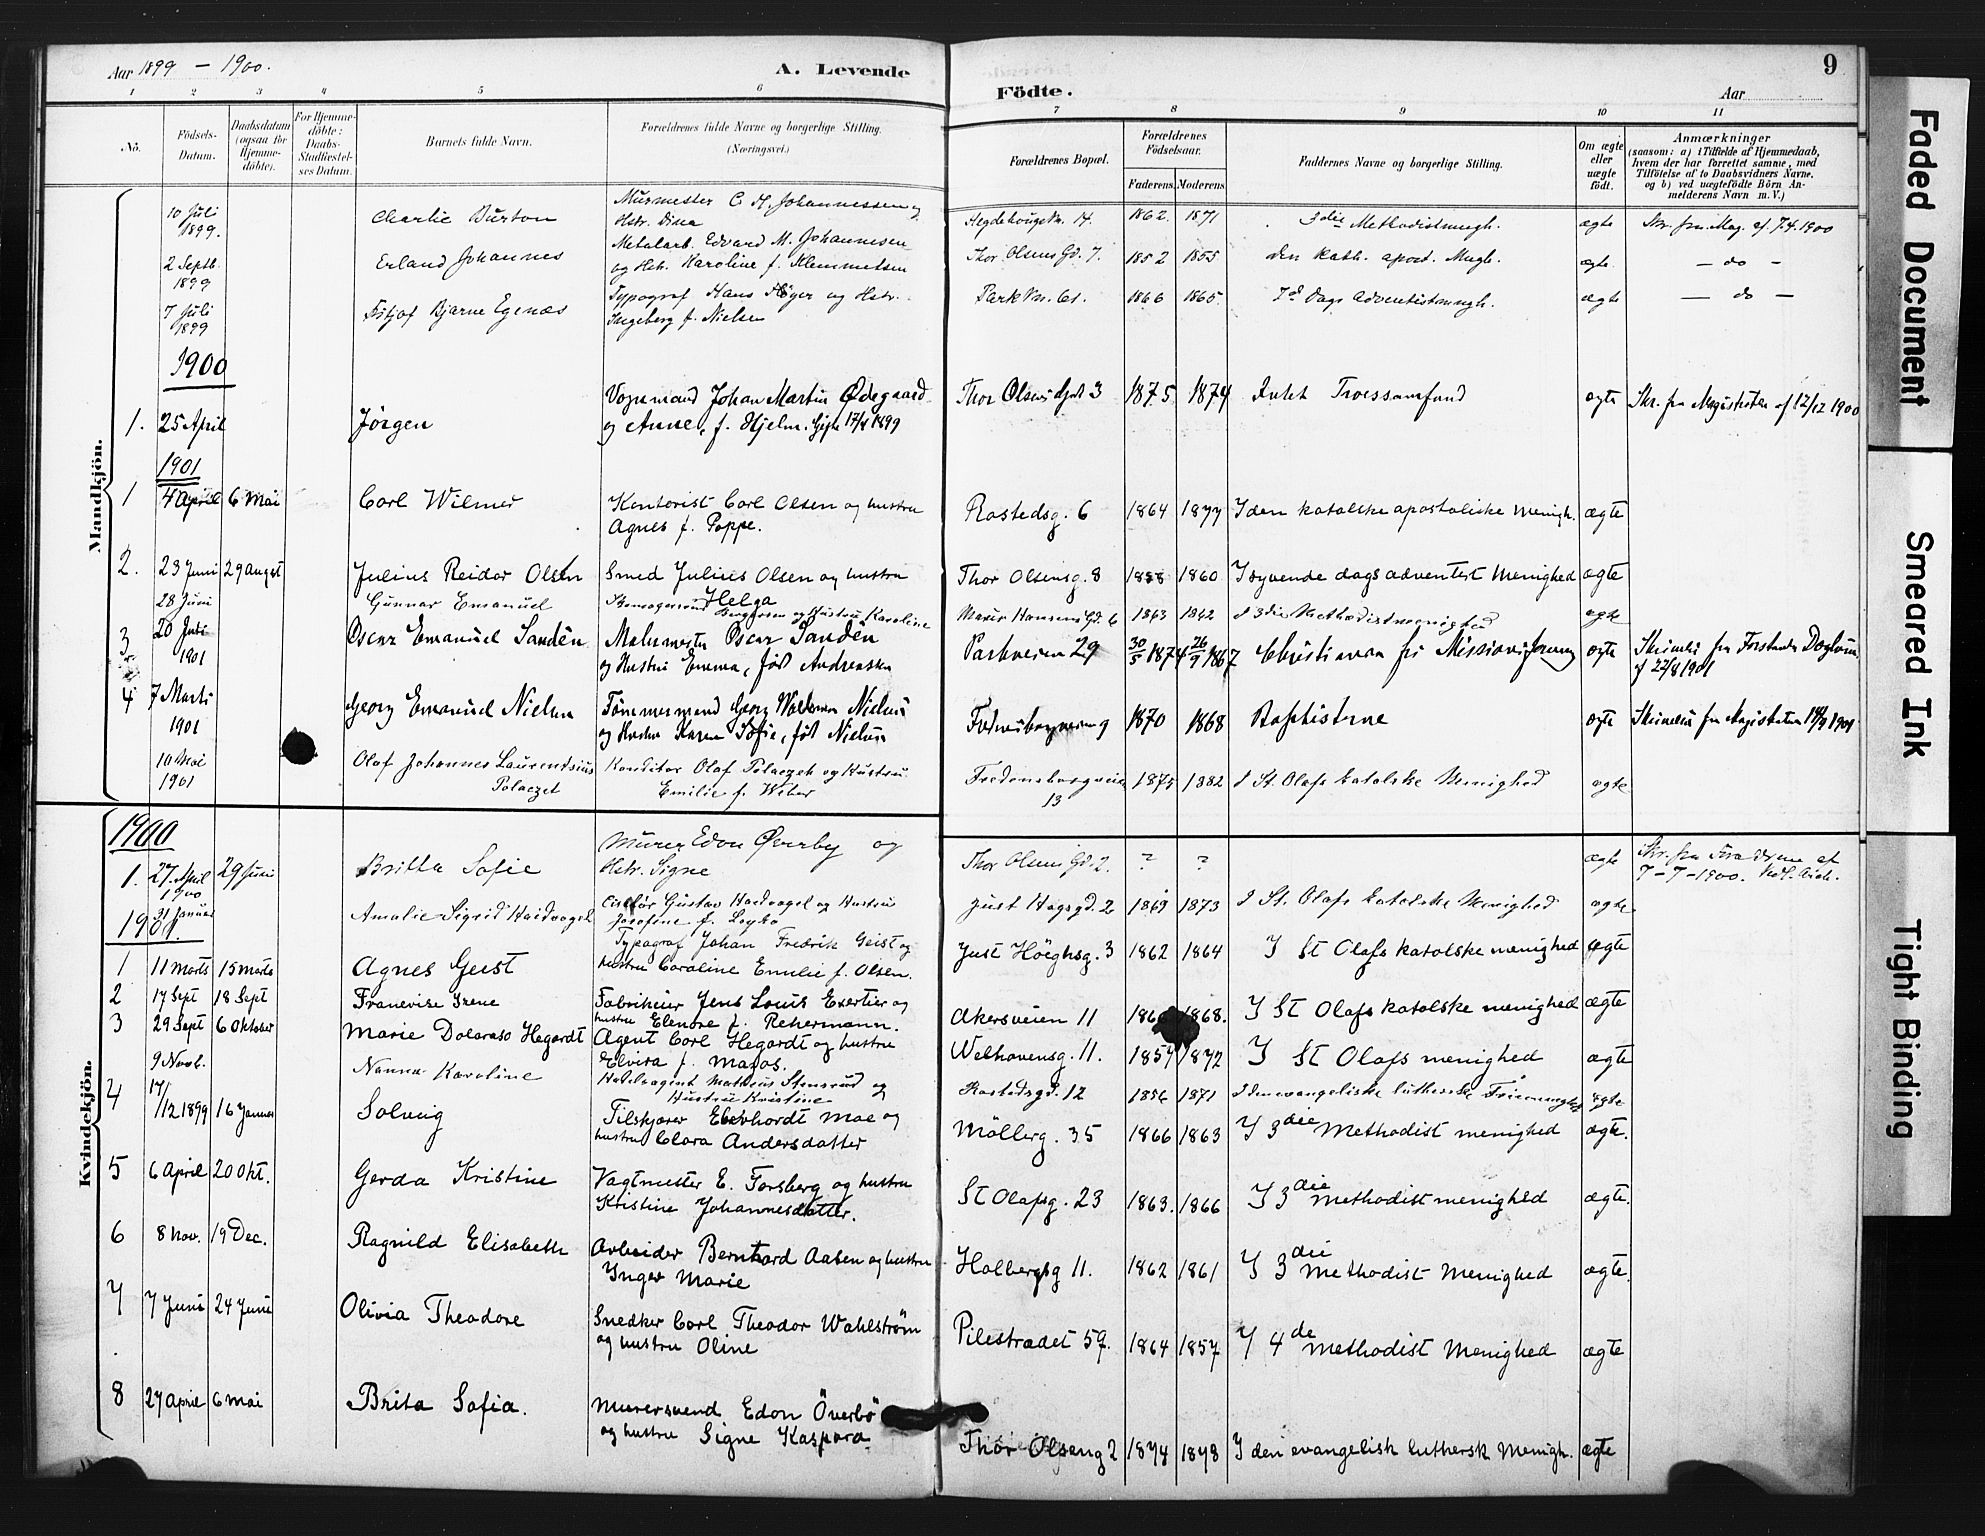 Aar 1899 – 1900.
A. Levende
Födte.
Aar
9
1 2 3 4 5 6 7 8 9 10 11
No.
Födsels-Datum.
Daabsdatum (ogsaa for Hjemme-döbte).
For Hjemme-döbte: Daabs-Stadfæstel-ses Datum.
Barnets fulde Navn.
Forældrenes fulde Navne og borgerlige Stilling. (Næringsvei.)
Forældrenes Bopæl.
Forældrenes Födselsaar.
Faderens Moderens
Faddernes Navne og borgerlige Stilling.
Om ægte eller uægte födt.
Anmærkninger
(saasom: a) i Tilfælde af Hjemmedaab,
hvem der har forrettet samme, med
Tilföielse af to Daabsvidners Navne.
og b) ved uægtefödte Börn An-
melderens Navn m. V.)
Mandkjön.
10 Juli 1899. Charlie Burton Murmester C. H. Johannessen og Hstr. Dina Hegdehaugsvn. 14. 1862. 1871 3die Methodistmngh. ægte Skr. fra Mag. af 7.4.1900
2 Septb. 1899 Erland Johannes Metalarb. Edvard M. Johannesen og Hstr. Karoline f. Klemmetsen Thor Olsens Gd. 7. 1852 1855 den kath. apost. Mngh. ægte – do –
7 Juli 1899 Fritjof Bjarne Egenæs Typograf Hans Höyer og Hstr. Ingeborg f. Nielsen Parkvn. 61. 1866 1865. 7d dags Adventistmngh. ægte – do –
1900
1. 25 April Jörgen Vognmand Johan Martin Ødegaard og Anne, f. Hjelm. Gift 17/4 1899 Thor Olsens Gad. 3 1875 1874 Intet Troessamfund ægte Skr. fra Magistraten af 12/12 1900
1901
1 4 April 6 Mai Carl Wilmer Kontorist Carl Olsen og hustru Agnes f. Poppe. Rostedsg. 6 1864 1877 I den katolske apostoliske Menigh. ægte
2. 23 Juni 29 Augst Julius Reidar Olsen Smed Julius Olsen og hustru Helga Thor Olsensg. 8 1858 1860 I syvende dags adventist Menighed ægte
28 Juni Gunnar Emanuel og Hustru Karoline Gd. 6 1863 1862 I 3die Methodistmenighed ægte
3 20 Juli 1901 Oscar Emanuel Sandén Malermester Oscar Sandén og Hustru Emma, født Andreassen Parkveien 29 30/5 1874 26/9 1867 Christiania fri Missionsforening ægte af 22/8 1901
4 7 Marts 1901 Georg Emanuel Nielsen Tömmermand Georg Nielsen og Hustru Karen Sofie, født Nielsen 9 1870 1868 Baptisterne ægte fra Magistraten 1901
10 Mai 1901 Olaf Johannes Laurentsius Polaczek Konditor Olaf Polaczek og Hustru Emilie f. Weber Fredensborgveien 13 1875 1882 I St. Olafs katolske Menighed ægte
Kvindekjön.
1900
1. 27. April 1900 29 Juni Britta Sofie Murer Edon Øverby og Hstr. Signe Thor Olsens Gd. 2. ? ? ægte Skr. fra Forældrene af 7-7-1900.
31 Januar 1901. Amalie Sigrid Haidvogel Ciselör Gustav Haidvogel og Hustru Josefine f. Just Högsgd. 2 1869 1873 I St. Olafs katolske Menighed ægte
1 11 Marts 15 Marts Agnes Geist Typograf Johan Fredrik Geist og hustru Caroline Emilie f. Olsen. Just Höeghsg. 3 1862 1864 I St Olafs katolske menighed ægte
2 17 Sept 18 Sept Francoise Irene Fabrikeier Jens Louis Exertier og hustru Elenore f. Rehermann. Akersveien 11 1868. I St Olafs katolske menighed ægte
3 29 Sept 6 Oktober Marie Doloraso Hegardt Agent Carl Hegardt og hustru Elvira f. Masos. Welhavensg. 11. 1857 1872 I St Olafs menighed ægte
9 Novb. Nanna Karoline Handelsagent Mathius Stensrud og Hustru Kristine Rostedsgd. 12 1856 1871 I den evangeliske lutherske Frimenighed ægte
4 17/12 1899 16 Januar Solveig Filskjærer Eberhardt Moe og hustru Clara Andersdatter Möllerg. 35 1866 1863 I 3die Methodist menighed ægte.
5 6 April 20 Okt. Gerda Kristine Vagtmester E. Forsberg og hustru Kristine Johannesdatter. St Olafsg. 23 1863. 1866 I 3die methodist menighed ægte.
6 8 Nov. 19 Dec. Ragnild Elisabeth Arbeider Bernhard Aasen og hustru Inger Marie Holbergsg 11. 1862 1861 I 3die methodist Menighed ægte.
7 7 Juni 24 Juni Olivia Theodore Snedker Carl Theodor Wahlström og hustru Oline Pilestrædet 59. 1864 1857 I 4de methodist Menighed ægte
8 27 April 6 Mai Brita Sofia. Murersvend Edon Överbö og hustru Signe Kaspara Thor Olseng 2 1874 1878 I den evangelisk luthersk Menigh. ægte
Faded Document
Smeared Ink
Tight Binding